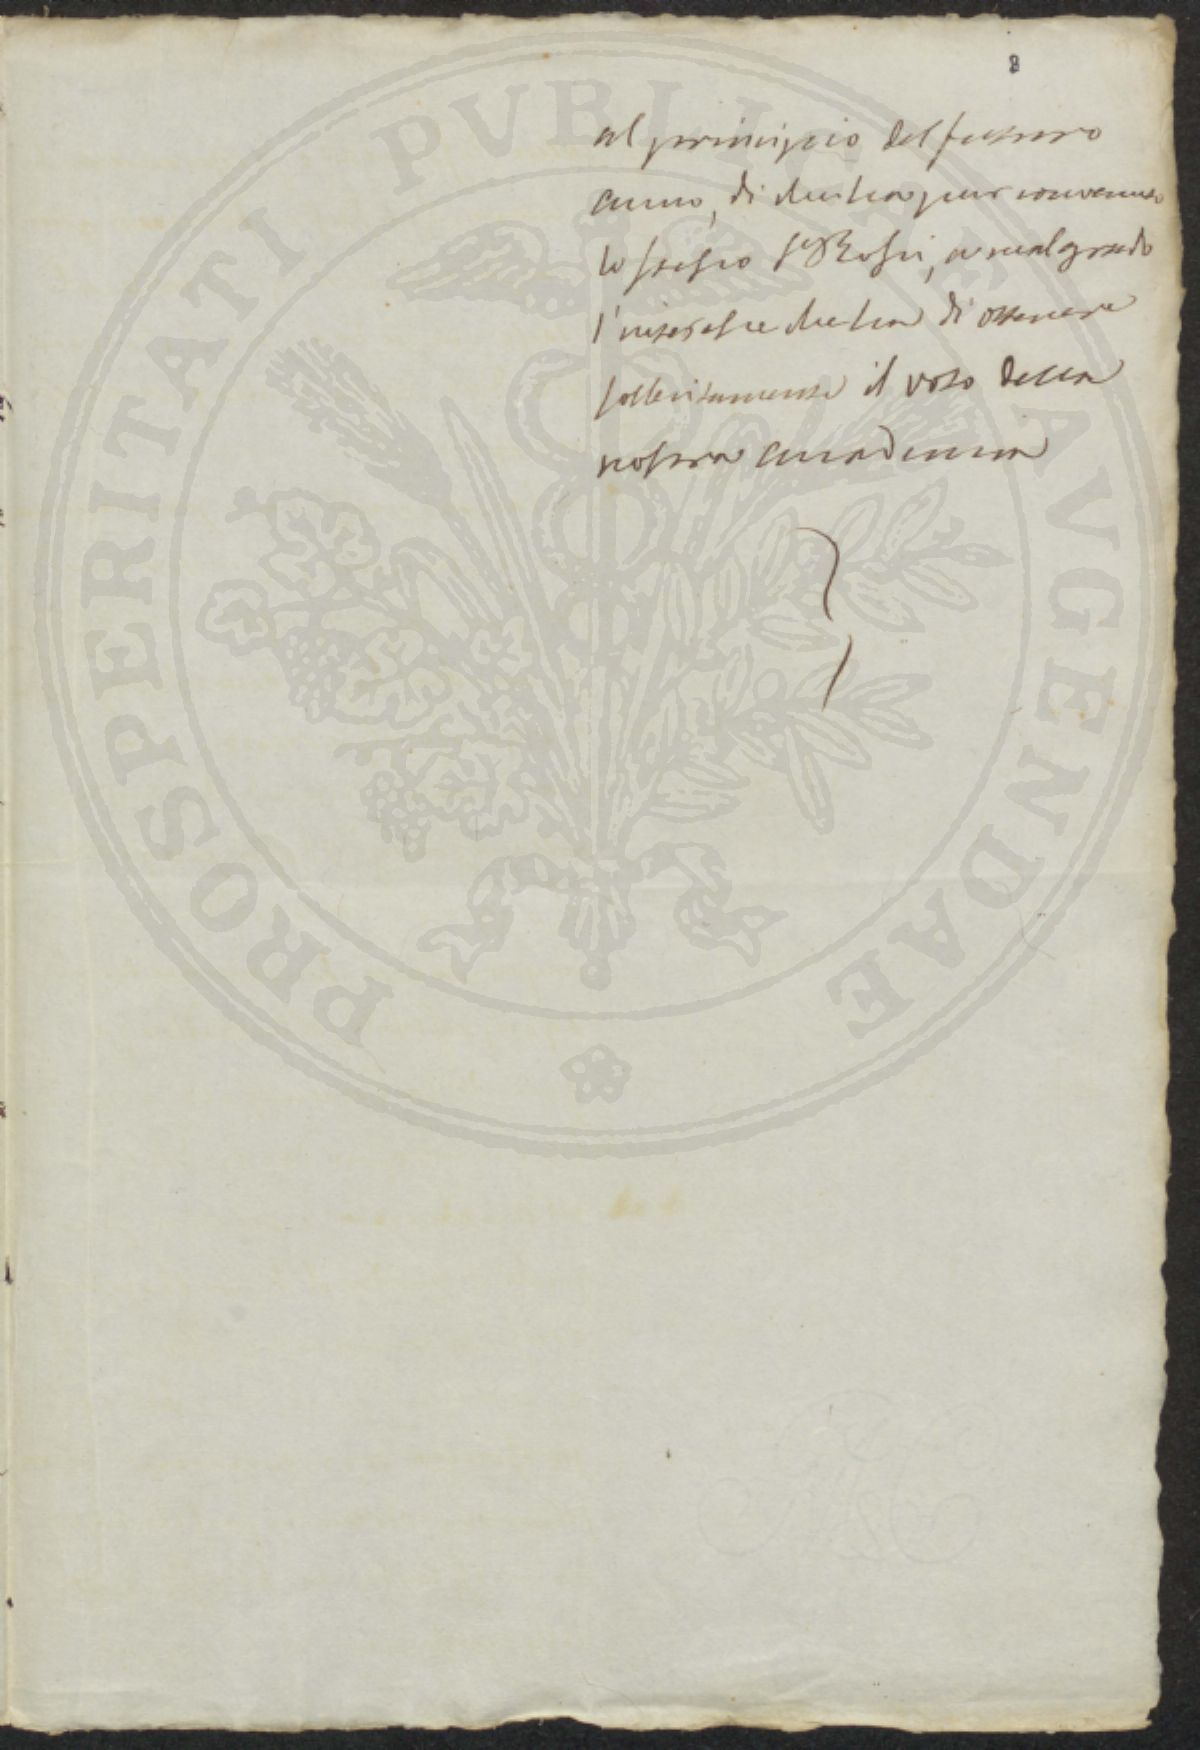 8
al principio del futuro
anno, di che ha pur convenuto
lo stesso Sig. Rossi, a malgrado
l'interesse che ha di ottenere
sollecitamente il voto della
nostra accademia
PROSPERITATI PVBLICAE AVGENDAE